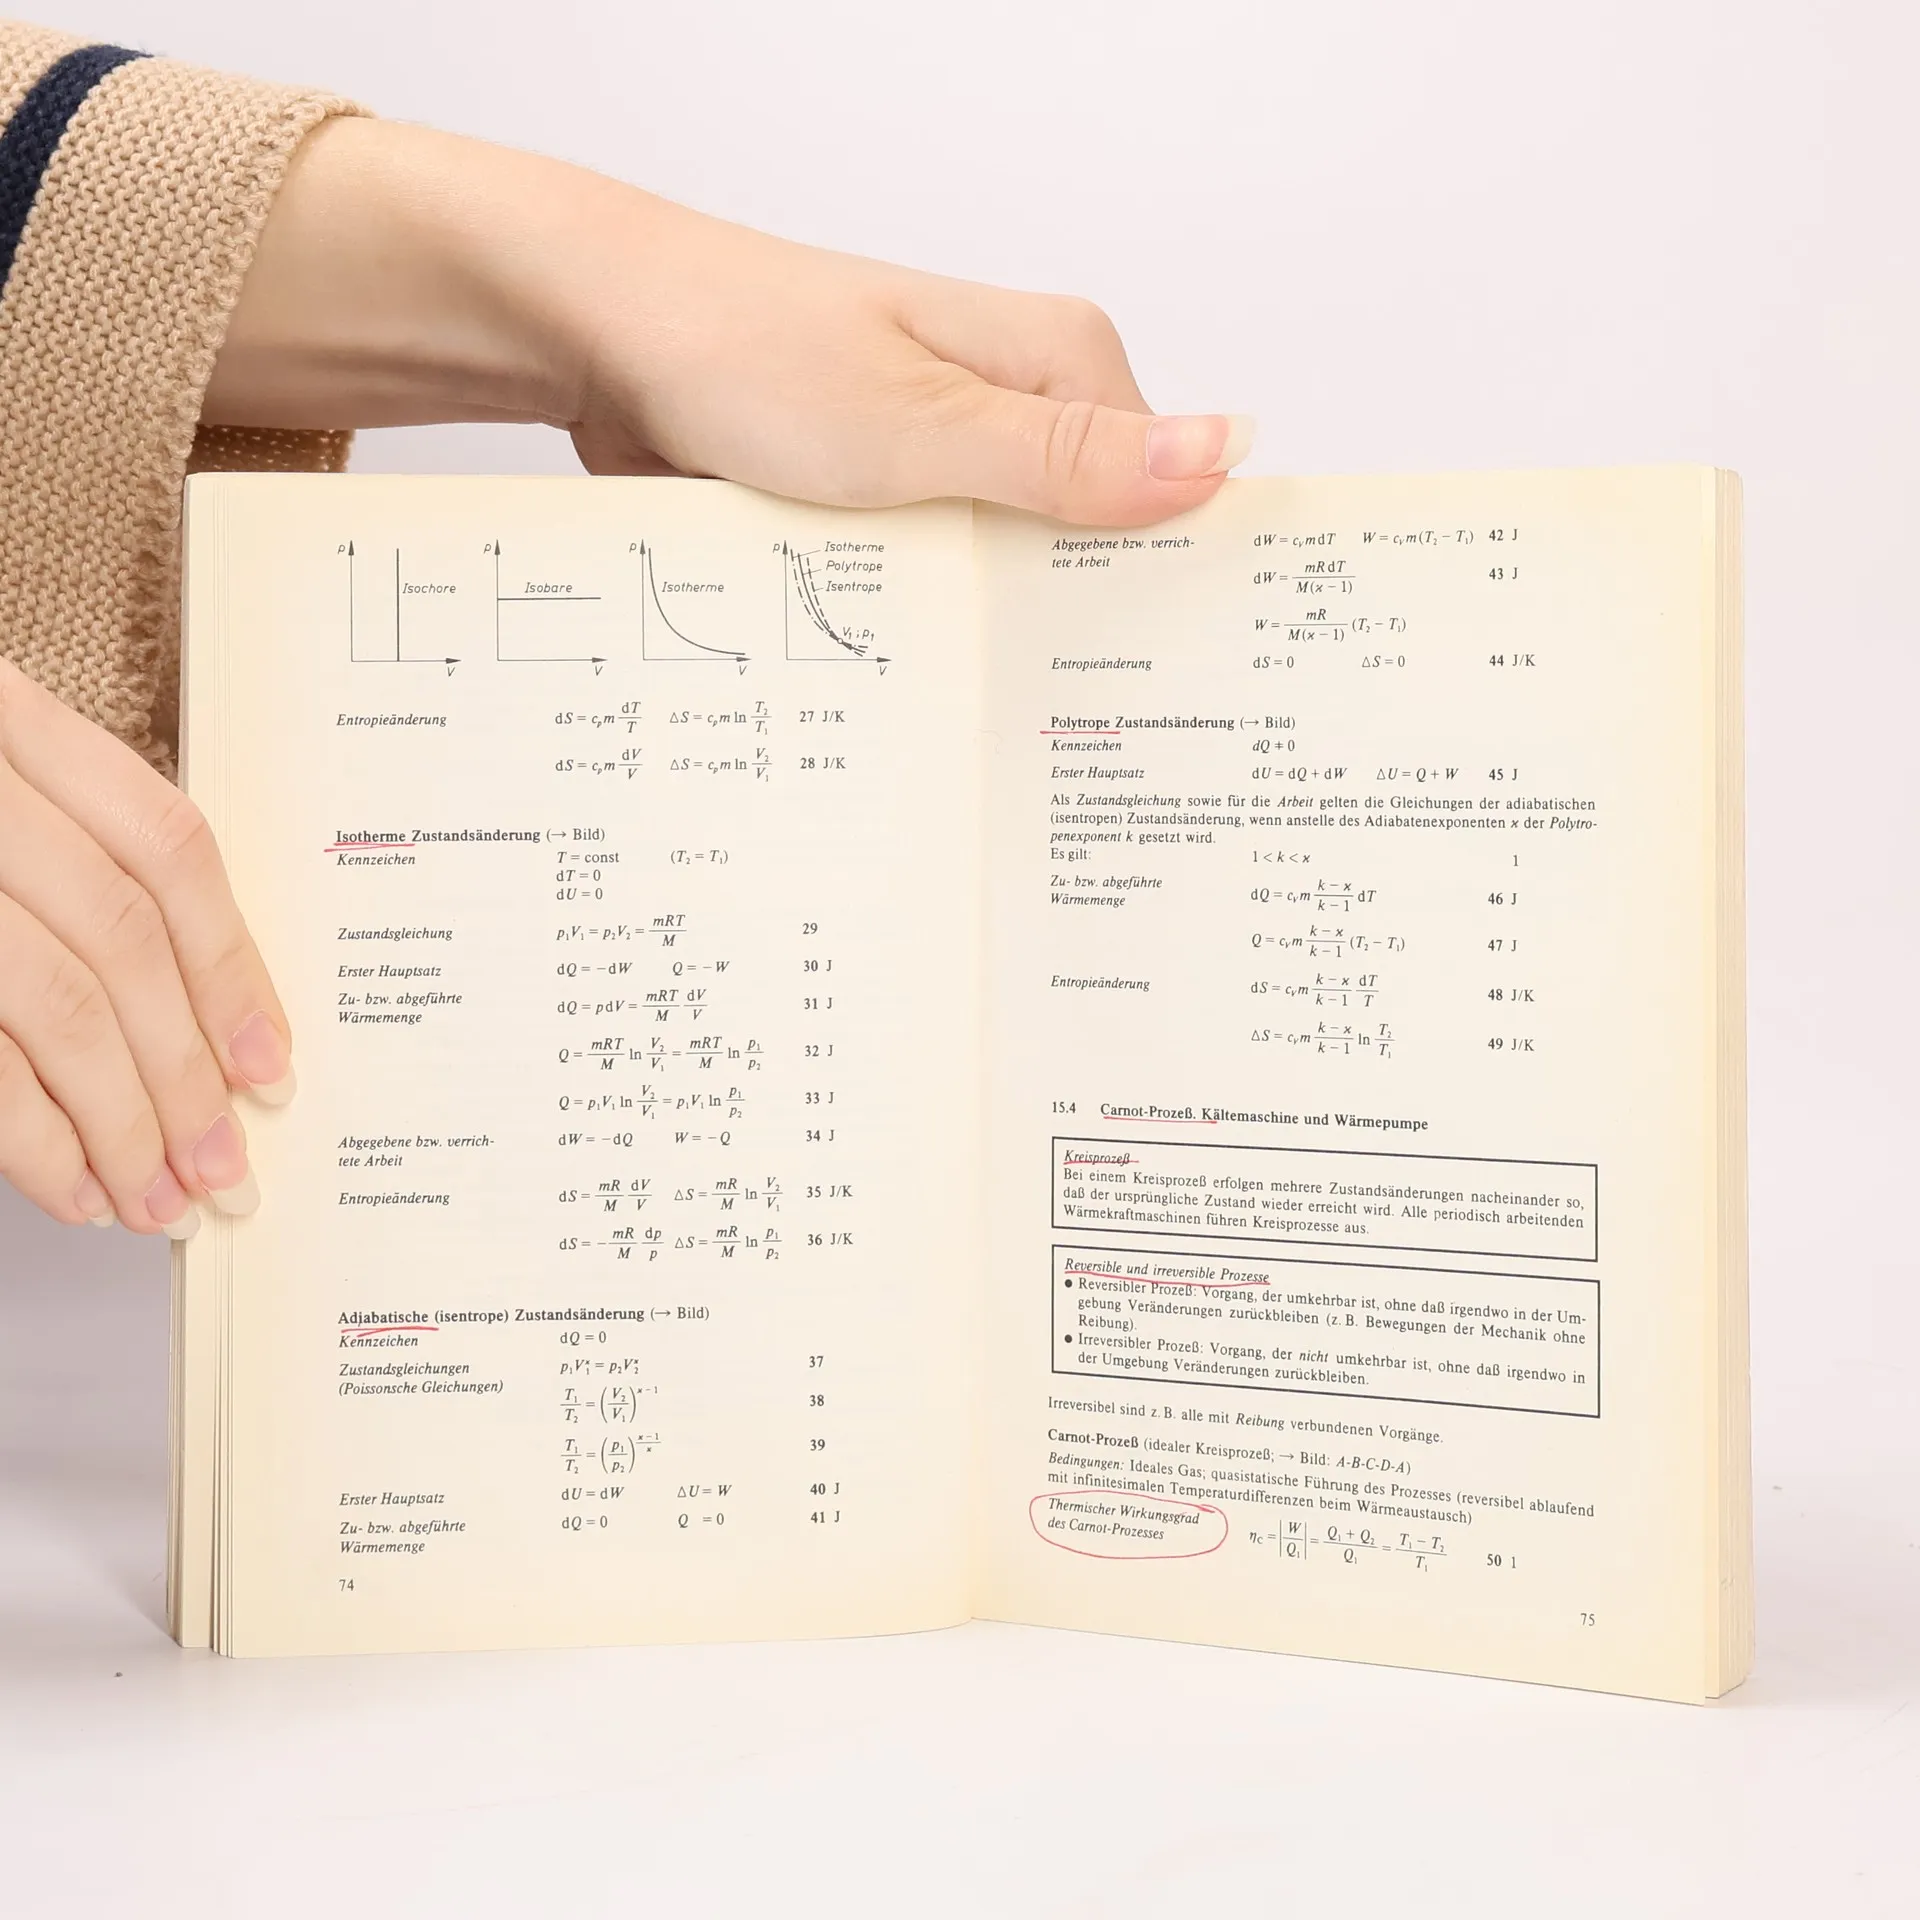 p Isochore V
p Isobare V
p Isotherme V
p Isotherme
Polytrope
Isentrope
V₁; p₁
V
Entropieänderung dS = cₚm dT/T ΔS = cₚm ln T₂/T₁ 27 J/K
dS = cₚm dV/V ΔS = cₚm ln V₂/V₁ 28 J/K
Isotherme Zustandsänderung (→ Bild)
Kennzeichen T = const (T₂ = T₁)
dT = 0
dU = 0
Zustandsgleichung p₁V₁ = p₂V₂ = mRT/M 29
Erster Hauptsatz dQ = −dW Q = −W 30 J
Zu- bzw. abgeführte
Wärmemenge dQ = pdV = mRT/M dV/V 31 J
Q = mRT/M ln V₂/V₁ = mRT/M ln p₁/p₂ 32 J
Q = p₁V₁ ln V₂/V₁ = p₁V₁ ln p₁/p₂ 33 J
Abgegebene bzw. verrich-
tete Arbeit dW = −dQ W = −Q 34 J
Entropieänderung dS = mR/M dV/V ΔS = mR/M ln V₂/V₁ 35 J/K
dS = −mR/M dp/p ΔS = mR/M ln p₁/p₂ 36 J/K
Adiabatische (isentrope) Zustandsänderung (→ Bild)
Kennzeichen dQ = 0
Zustandsgleichungen p₁V₁^ϰ = p₂V₂^ϰ 37
(Poissonsche Gleichungen) T₁/T₂ = (V₂/V₁)^(ϰ−1) 38
T₁/T₂ = (p₁/p₂)^((ϰ−1)/ϰ) 39
Erster Hauptsatz dU = dW ΔU = W 40 J
Zu- bzw. abgeführte
Wärmemenge dQ = 0 Q = 0 41 J
74
Abgegebene bzw. verrich-
tete Arbeit dW = cᵥmdT W = cᵥm(T₂ − T₁) 42 J
dW = mRdT/M(ϰ − 1) 43 J
W = mR/M(ϰ − 1) (T₂ − T₁)
Entropieänderung dS = 0 ΔS = 0 44 J/K
Polytrope Zustandsänderung (→ Bild)
Kennzeichen dQ ≠ 0
Erster Hauptsatz dU = dQ + dW ΔU = Q + W 45 J
Als Zustandsgleichung sowie für die Arbeit gelten die Gleichungen der adiabatischen
(isentropen) Zustandsänderung, wenn anstelle des Adiabatenexponenten ϰ der Polytro-
penexponent k gesetzt wird.
Es gilt: 1 < k < ϰ 1
Zu- bzw. abgeführte
Wärmemenge dQ = cᵥm (k − ϰ)/(k − 1) dT 46 J
Q = cᵥm (k − ϰ)/(k − 1) (T₂ − T₁) 47 J
Entropieänderung dS = cᵥm (k − ϰ)/(k − 1) dT/T 48 J/K
ΔS = cᵥm (k − ϰ)/(k − 1) ln T₂/T₁ 49 J/K
15.4 Carnot-Prozeß. Kältemaschine und Wärmepumpe
Kreisprozeß
Bei einem Kreisprozeß erfolgen mehrere Zustandsänderungen nacheinander so,
daß der ursprüngliche Zustand wieder erreicht wird. Alle periodisch arbeitenden
Wärmekraftmaschinen führen Kreisprozesse aus.
Reversible und irreversible Prozesse
● Reversibler Prozeß: Vorgang, der umkehrbar ist, ohne daß irgendwo in der Um-
gebung Veränderungen zurückbleiben (z. B. Bewegungen der Mechanik ohne
Reibung).
● Irreversibler Prozeß: Vorgang, der nicht umkehrbar ist, ohne daß irgendwo in
der Umgebung Veränderungen zurückbleiben.
Irreversibel sind z. B. alle mit Reibung verbundenen Vorgänge.
Carnot-Prozeß (idealer Kreisprozeß; → Bild: A-B-C-D-A)
Bedingungen: Ideales Gas; quasistatische Führung des Prozesses (reversibel ablaufend
mit infinitesimalen Temperaturdifferenzen beim Wärmeaustausch)
Thermischer Wirkungsgrad
des Carnot-Prozesses η_C = |W/Q₁| = (Q₁ + Q₂)/Q₁ = (T₁ − T₂)/T₁ 50 1
75